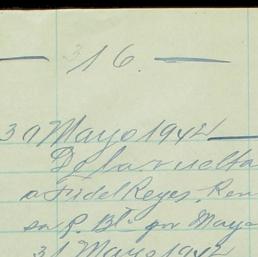 — 16. —
30 Mayo 1942 —
De la vuelta
a Fidel Reyes, Ren
sa R. Bte por Mayo
31 Mayo 1942